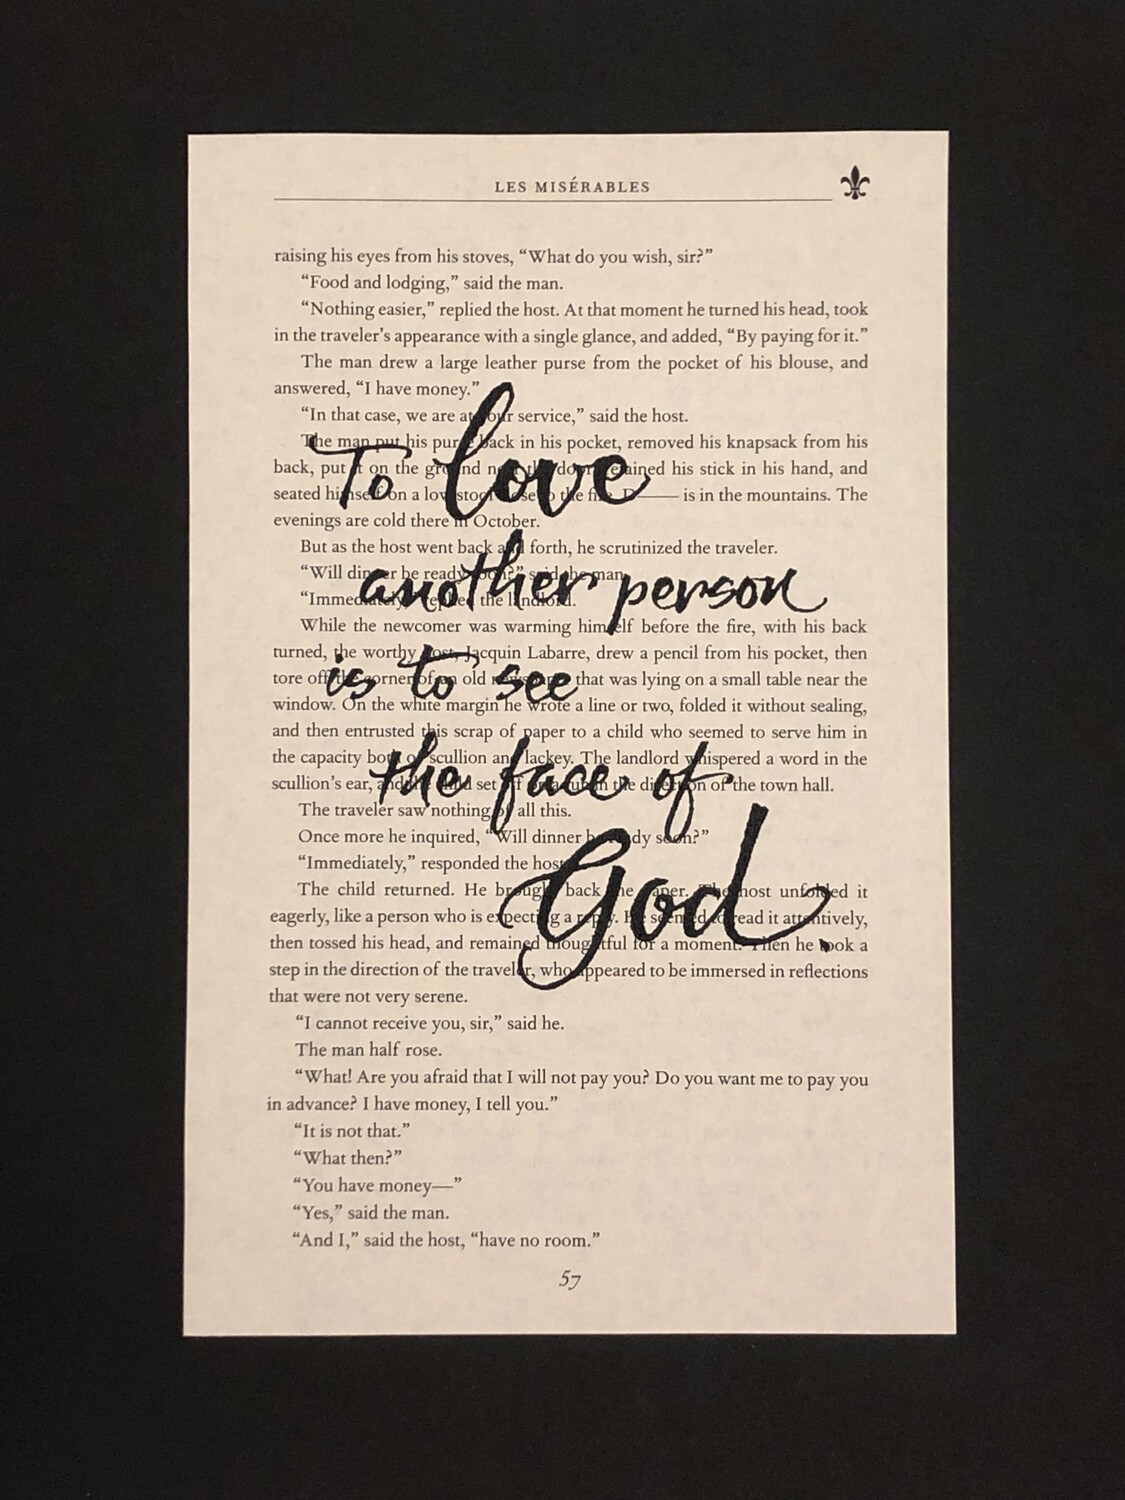 LES MISÉRABLES
raising his eyes from his stoves, “What do you wish, sir?”
“Food and lodging,” said the man.
“Nothing easier,” replied the host. At that moment he turned his head, took
in the traveler’s appearance with a single glance, and added, “By paying for it.”
The man drew a large leather purse from the pocket of his blouse, and
answered, “I have money.”
“In that case, we are at your service,” said the host.
The man put his purse back in his pocket, removed his knapsack from his
back, put it on the ground near the door, retained his stick in his hand, and
seated himself on a low stool close to the fire. D—— is in the mountains. The
evenings are cold there in October.
But as the host went back and forth, he scrutinized the traveler.
“Will dinner be ready soon?” said the man.
“Immediately,” replied the landlord.
While the newcomer was warming himself before the fire, with his back
turned, the worthy host, Jacquin Labarre, drew a pencil from his pocket, then
tore off the corner of an old newspaper that was lying on a small table near the
window. On the white margin he wrote a line or two, folded it without sealing,
and then entrusted this scrap of paper to a child who seemed to serve him in
the capacity both of scullion and lackey. The landlord whispered a word in the
scullion’s ear, and the child set off on a run in the direction of the town hall.
The traveler saw nothing of all this.
Once more he inquired, “Will dinner be ready soon?”
“Immediately,” responded the host.
The child returned. He brought back the paper. The host unfolded it
eagerly, like a person who is expecting a reply. He seemed to read it attentively,
then tossed his head, and remained thoughtful for a moment. Then he took a
step in the direction of the traveler, who appeared to be immersed in reflections
that were not very serene.
“I cannot receive you, sir,” said he.
The man half rose.
“What! Are you afraid that I will not pay you? Do you want me to pay you
in advance? I have money, I tell you.”
“It is not that.”
“What then?”
“You have money—”
“Yes,” said the man.
“And I,” said the host, “have no room.”
57
To love
another person
is to see
the face of
God.